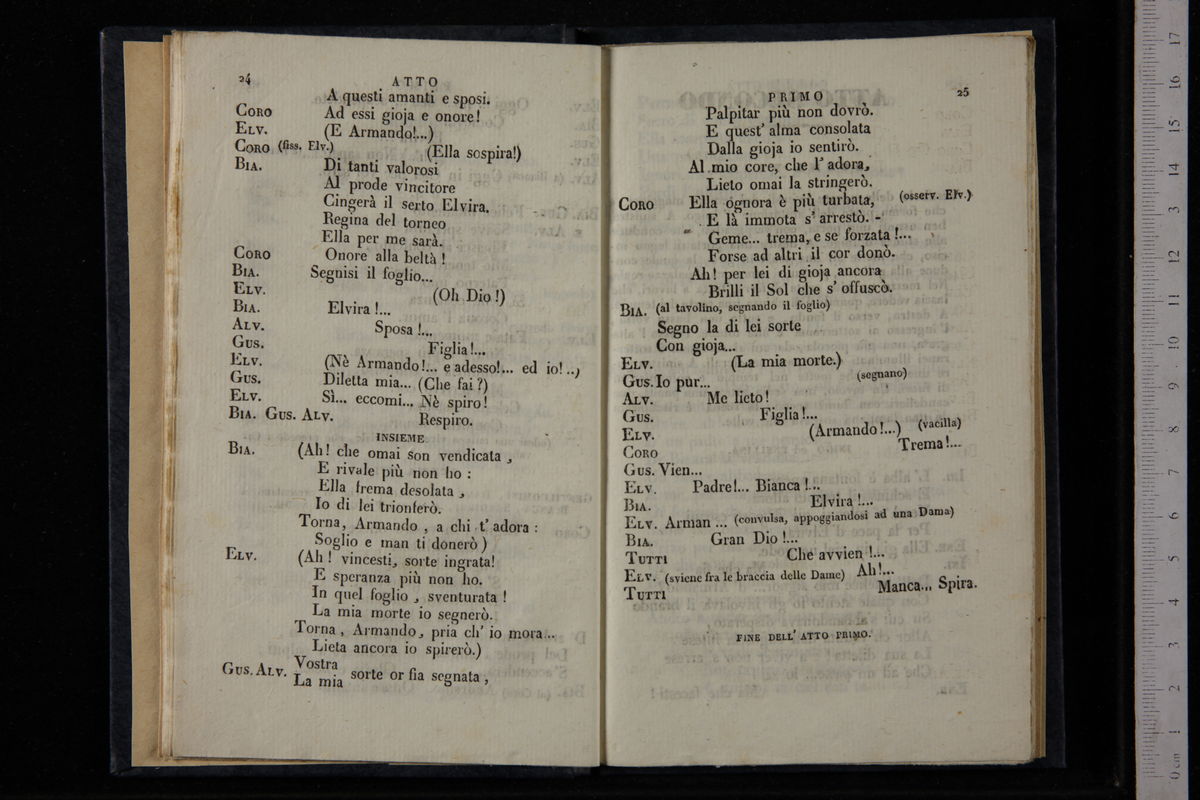 24 ATTO
A questi amanti e sposi.
CORO Ad essi gioja e onore!
ELV. (E Armando!...)
CORO (fiss. Elv.) (Ella sospira!)
BIA. Di tanti valorosi
Al prode vincitore
Cingerà il serto Elvira.
Regina del torneo
Ella per me sarà.
CORO Onore alla beltà!
BIA. Segnisi il foglio...
ELV. (Oh Dio!)
BIA. Elvira!...
ALV. Sposa!...
GUS. Figlia!...
ELV. (Nè Armando!... e adesso!... ed io!..,
GUS. Diletta mia... (Che fai?)
ELV. Sì... eccomi... Nè spiro!
BIA. GUS. ALV. Respiro.
INSIEME
BIA. (Ah! che omai son vendicata,
E rivale più non ho:
Ella frema desolata,
Io di lei trionferò.
Torna, Armando, a chi t' adora:
Soglio e man ti donerò)
ELV. (Ah! vincesti, sorte ingrata!
E speranza più non ho.
In quel foglio, sventurata!
La mia morte io segnerò.
Torna, Armando, pria ch' io mora...
Lieta ancora io spirerò.)
GUS. ALV. Vostra
La mia sorte or fia segnata,
PRIMO 25
Palpitar più non dovrò.
E quest' alma consolata
Dalla gioja io sentirò.
Al mio core, che l' adora,
Lieto omai la stringerò.
CORO Ella ognora è più turbata, (osserv. Elv.)
E là immota s' arrestò. -
Geme... trema, e se forzata!...
Forse ad altri il cor donò.
Ah! per lei di gioja ancora
Brilli il Sol che s' offuscò.
BIA. (al tavolino, segnando il foglio)
Segno la di lei sorte
Con gioja...
ELV. (La mia morte.)
GUS. Io pur... (segnano)
ALV. Me lieto!
GUS. Figlia!...
ELV. (Armando!...) (vacilla)
CORO Trema!...
GUS. Vien...
ELV. Padre!... Bianca!...
BIA. Elvira!...
ELV. Arman... (convulsa, appoggiandosi ad una Dama)
BIA. Gran Dio!...
TUTTI Che avvien!...
ELV. (sviene fra le braccia delle Dame) Ah!...
TUTTI Manca... Spira.
FINE DELL' ATTO PRIMO.
0 cm 1 2 3 4 5 6 7 8 9 10 11 12 13 14 15 16 17